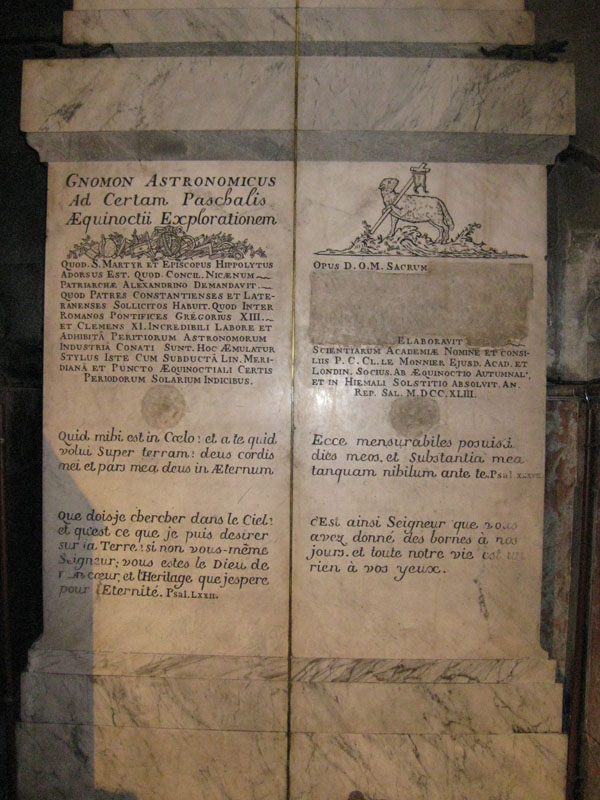 GNOMON ASTRONOMICUS
Ad Certam Paschalis
Æquinoctii Explorationem
QUOD. S. MARTYR ET EPISCOPUS HIPPOLYTUS
ADORSUS EST. QUOD. CONCIL. NICÆNUM
PATRIARCHÆ ALEXANDRINO DEMANDAVIT.
QUOD PATRES CONSTANTIENSES ET LATE-
RANENSES SOLLICITOS HABUIT. QUOD INTER
ROMANOS PONTIFICES GREGORIUS XIII.
ET CLEMENS XI. INCREDIBILI LABORE ET
ADHIBITÂ PERITIORUM ASTRONOMORUM
INDUSTRIÂ CONATI SUNT. HOC ÆMULATUR
STYLUS ISTE CUM SUBDUCTÂ LIN. MERI-
DIANÂ ET PUNCTO ÆQUINOCTIALI CERTIS
PERIODORUM SOLARIUM INDICIBUS.
Quid mihi est in Cœlo: et a te quid
volui Super terram: deus cordis
mei et pars mea deus in Æternum
Que dois-je chercher dans le Ciel:
et qu'est ce que je puis desirer
sur la Terre: si non vous-même
Seigneur; vous estes le Dieu de
mon cœur, et l'Heritage que j'espere
pour l'Eternité. Psal. LXXII.
OPUS D.O.M. SACRUM
ELABORAVIT
SCIENTIARUM ACADEMIÆ NOMINE ET CONSI-
LIIS P. C. CL. LE MONNIER EJUSD. ACAD. ET
LONDIN. SOCIUS. AB ÆQUINOCTIO AUTUMNAL.
ET IN HIEMALI SOLSTITIO ABSOLVIT. AN.
REP. SAL. M.DCC.XLIII.
Ecce mensurabiles posuisti
dies meos, et Substantia mea
tanquam nibilum ante te. Psal.
C'Est ainsi Seigneur que vous
avez donné des bornes à nos
jours. et toute notre vie est un
rien à vos yeux.